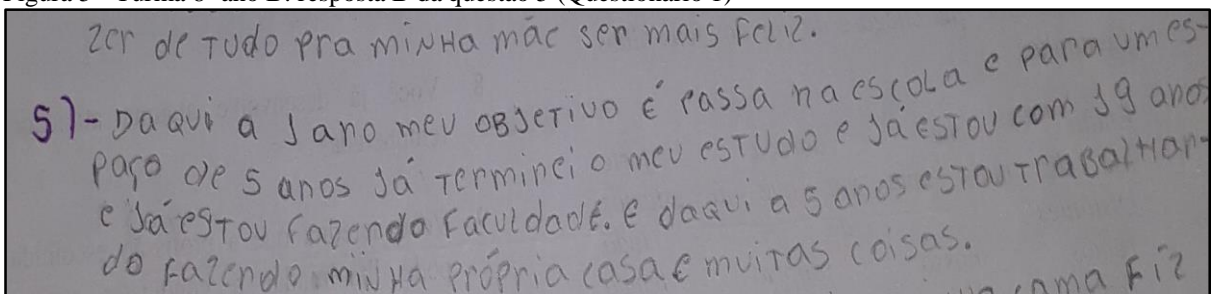 zer de Tudo pra minha mãe ser mais Feliz.
5)- Daqui a 1 ano meu objetivo é passa na escola e para um es-
paço de 5 anos já terminei o meu estudo e já estou com 19 anos
e já estou fazendo Faculdade. E daqui a 5 anos estou Trabalhan-
do fazendo minha própria casa e muitas coisas.
Fiz